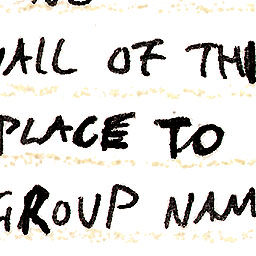 WALL OF TH
PLACE TO
GROUP NAM